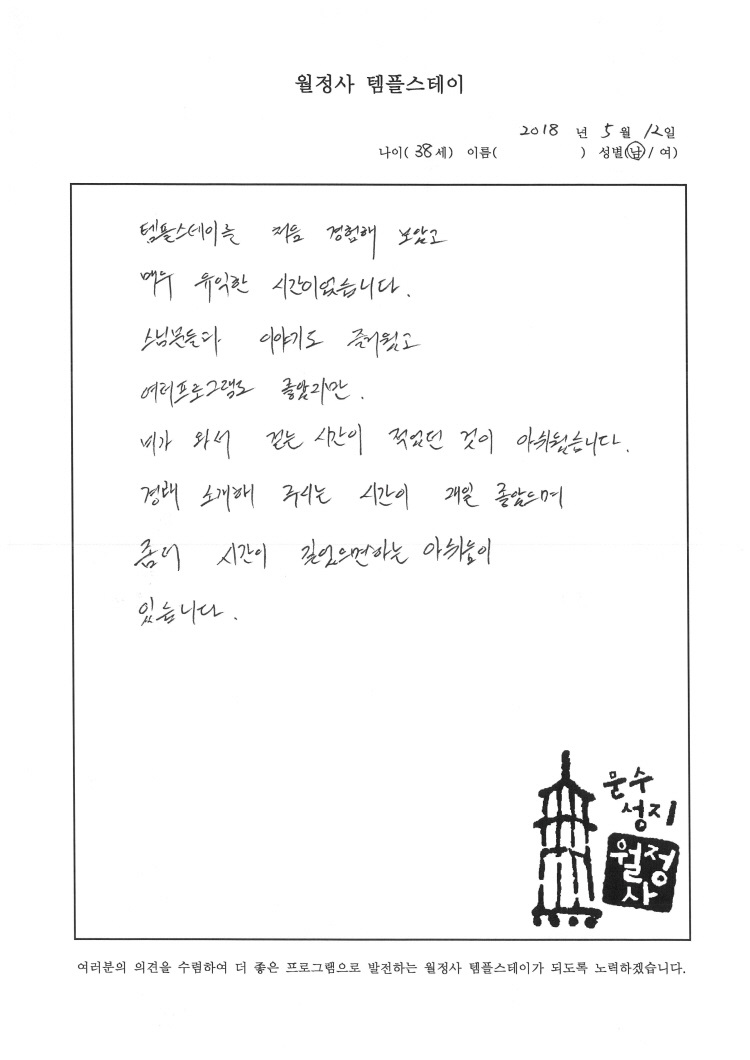 월정사 템플스테이
2018 년 5 월 12일
나이( 38 세) 이름( ) 성별(남/ 여)
템플스테이를 처음 경험해 보았고
매우 유익한 시간이었습니다.
스님분들과 이야기도 즐거웠고
여러프로그램도 좋았지만.
비가 와서 걷는 시간이 적었던 것이 아쉬웠습니다.
경배 소개해 주시는 시간이 제일 좋았으며
좀더 시간이 길었으면하는 아쉬움이
있습니다.
문수
성지
월정
사
여러분의 의견을 수렴하여 더 좋은 프로그램으로 발전하는 월정사 템플스테이가 되도록 노력하겠습니다.